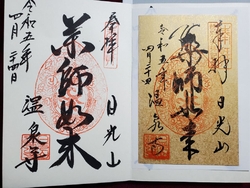 奉拝
日光山
薬師如来
令和五年
四月二十四日
温泉寺
奉拝
日光山
薬師如来
令和五年
四月二十四日
温泉寺